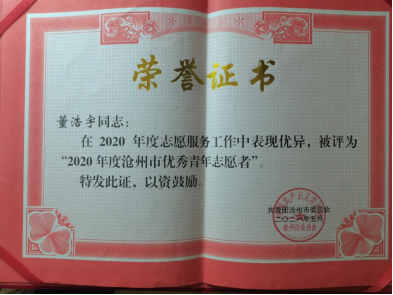 荣誉证书
董浩宇同志：
在 2020 年度志愿服务工作中表现优异，被评为
“2020 年度沧州市优秀青年志愿者”。
特发此证，以资鼓励。
共青团沧州市委员会
二〇二一年五月